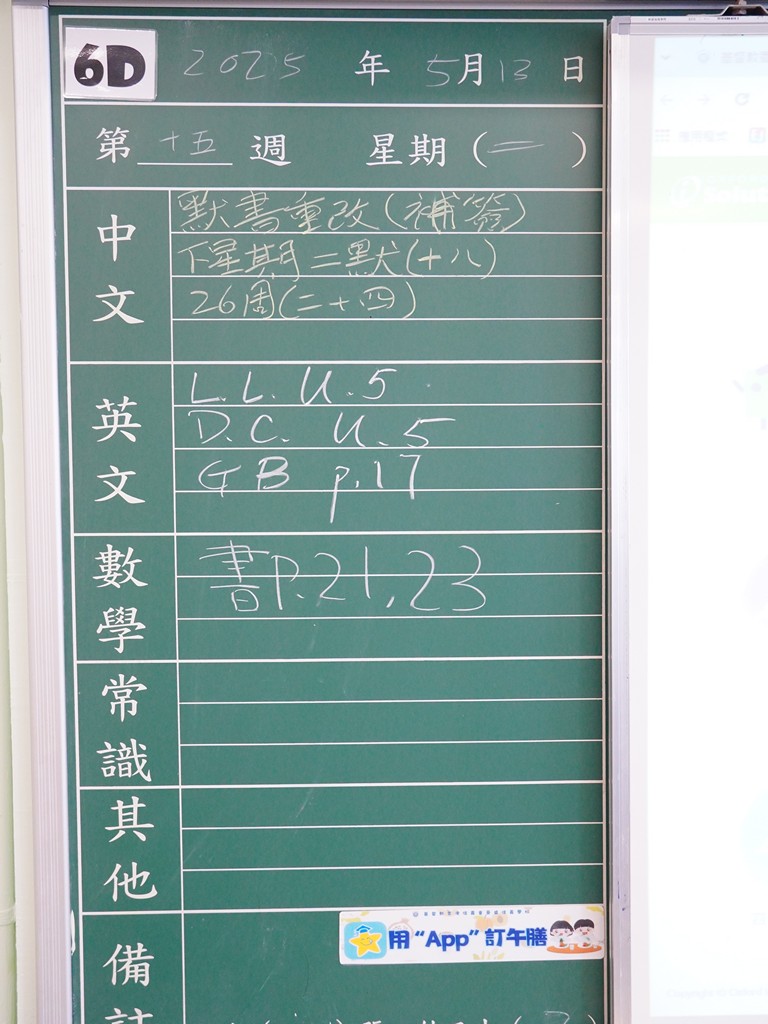 6D 2025 年 5月13 日
第 十五 週 星期(二)
中文
默書重改(補簽)
下星期二默(十八)
26周(二十四)
英文
L.L. U.5
D.C. U.5
GB p.17
數學
書P.21,23
常識
其他
用“App”訂午膳
備註